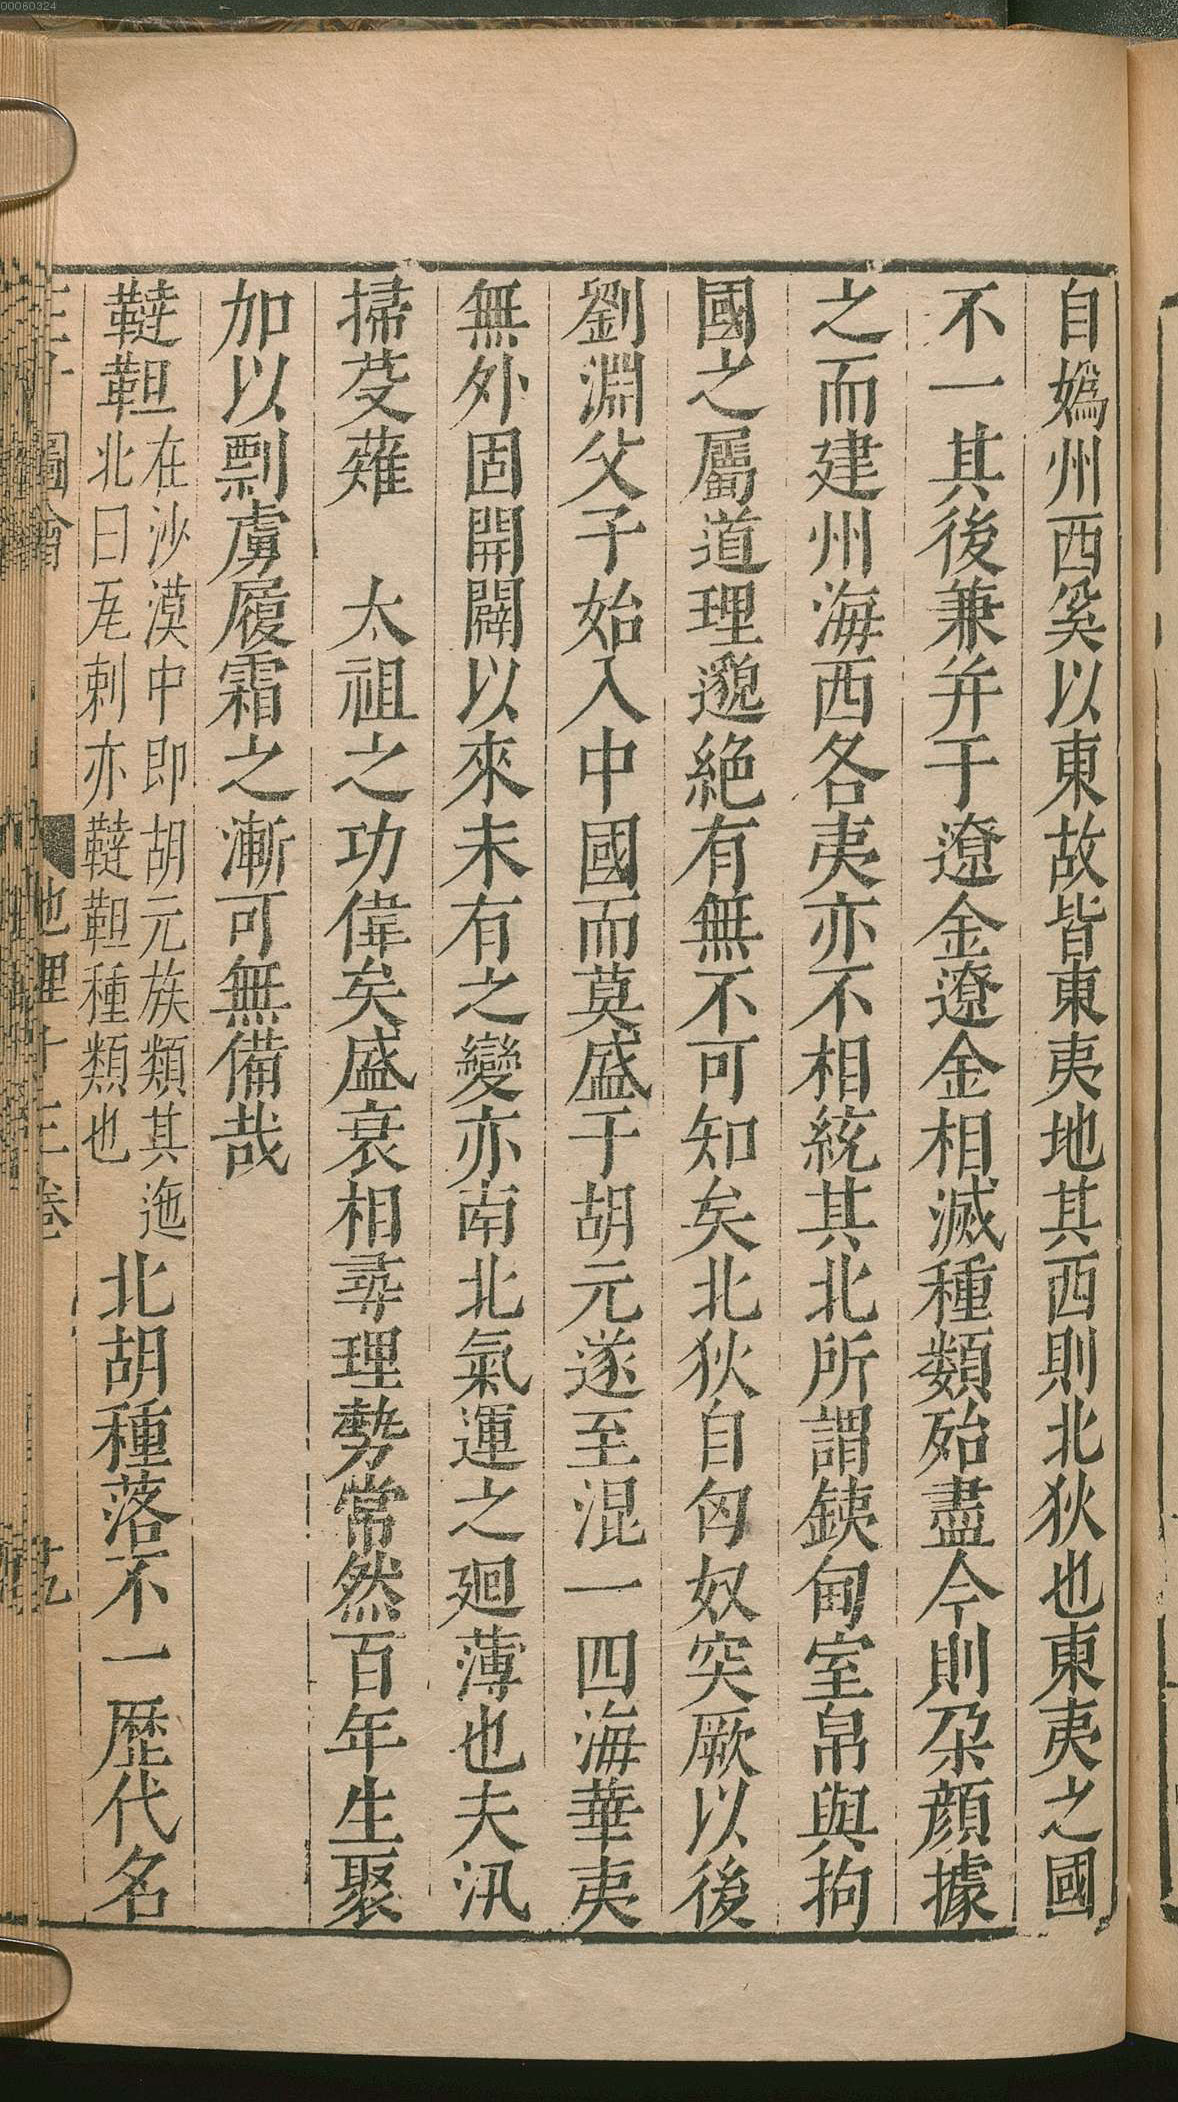 00060324
自嬀州西奚以東故皆東夷地其西則北狄也東夷之國
不一其後兼并于遼金遼金相滅種類殆盡今則朶顔據
之而建州海西各夷亦不相統其北所謂銕甸室帛與拘
國之屬道理邈絕有無不可知矣北狄自匈奴突厥以後
劉淵父子始入中國而莫盛于胡元遂至混一四海華夷
無外固開闢以來未有之變亦南北氣運之廻薄也夫汛
掃芟薙　太祖之功偉矣盛衰相尋理勢常然百年生聚
加以剽虜履霜之漸可無備哉
韃靼在沙漠中即胡元族類其迤
北曰瓦剌亦韃靼種類也
北胡種落不一歷代名
圖會
地理十三卷